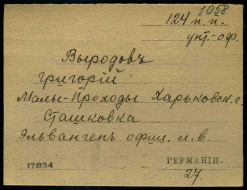 1058
124 п. п.
унт-оф.
Выродовъ
григорій
Малы-Проходы Харьковск. г.
Сташковка
Эльвангенъ офиц. л. в.
17634
ГЕРМАНІЯ.
27